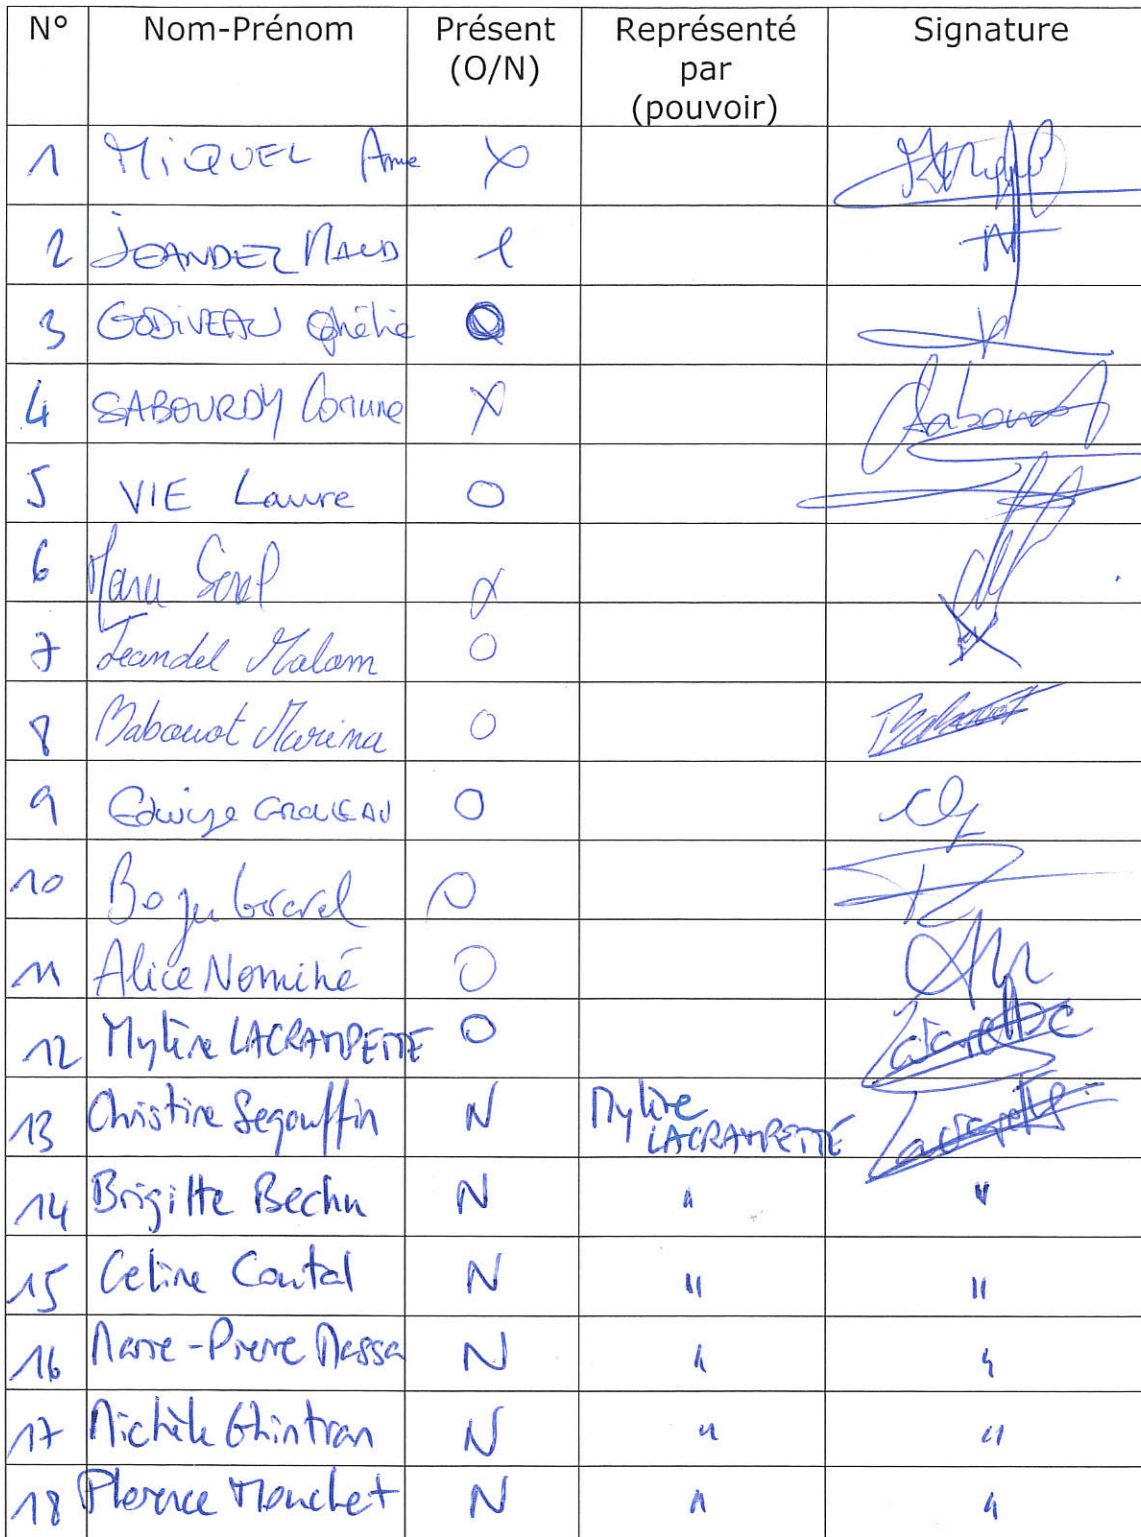 N° Nom-Prénom Présent (O/N) Représenté par (pouvoir) Signature
1 MIQUEL Anne X
2 JEANDEL MAUD
3 GODIVEAU Ophélie O
4 SABOURDY Corinne X
5 VIE Laure O
6 Sorel X
7 Jeandel O
8 Babouot Marina O
9 Edwige GROLLEAU O
10 O
11 Alice Nominé O
12 Mylène LACRAMPETTE O
13 Christine Segouffin N Mylène LACRAMPETTE
14 Brigitte Bechu N " "
15 Celine Contal N " "
16 Marie-Pierre Massa N " "
17 Michèle Ghintran N " "
18 Florence Mouchet N " "